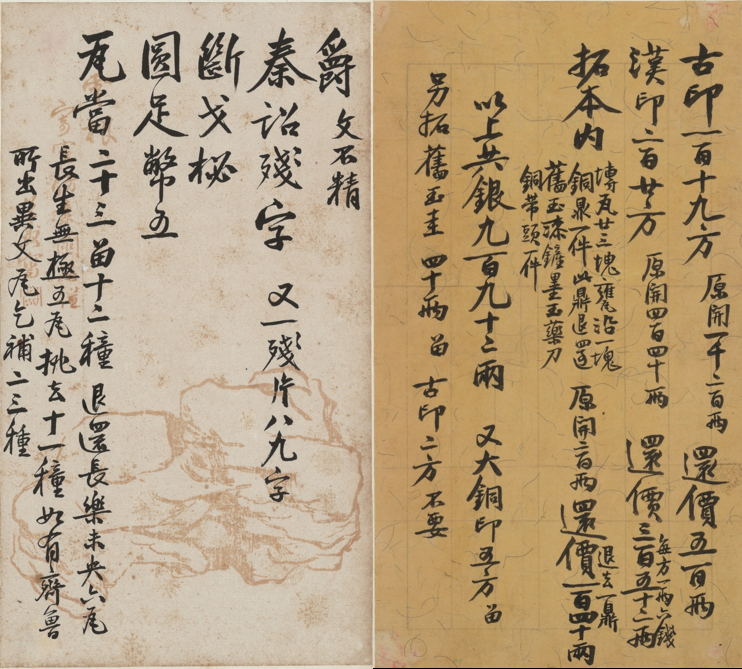 古印一百十九方 原開一千二百兩 還價五百兩
漢印二百廿方 原開四百四十兩 還價三百五十二兩
每方一兩六錢
拓本內
塼瓦廿三塊甕沿一塊
銅鼎一件此鼎退還
舊玉漆鏟墨玉藥刀
銅帶頭一件
原開二百兩 還價一百四十兩
退去一鼎
以上共銀九百九十二兩 又大銅印五方 留
另拓舊玉圭 四十兩 留 古印二方不要
爵 文不精
秦詔殘字 又一殘片八九字
斷戈柲
圓足幣五
瓦當二十三 留十二種 退還長樂未央六瓦
長生無極五瓦 挑去十一種 如有齊魯
所出異文瓦乞補二三種